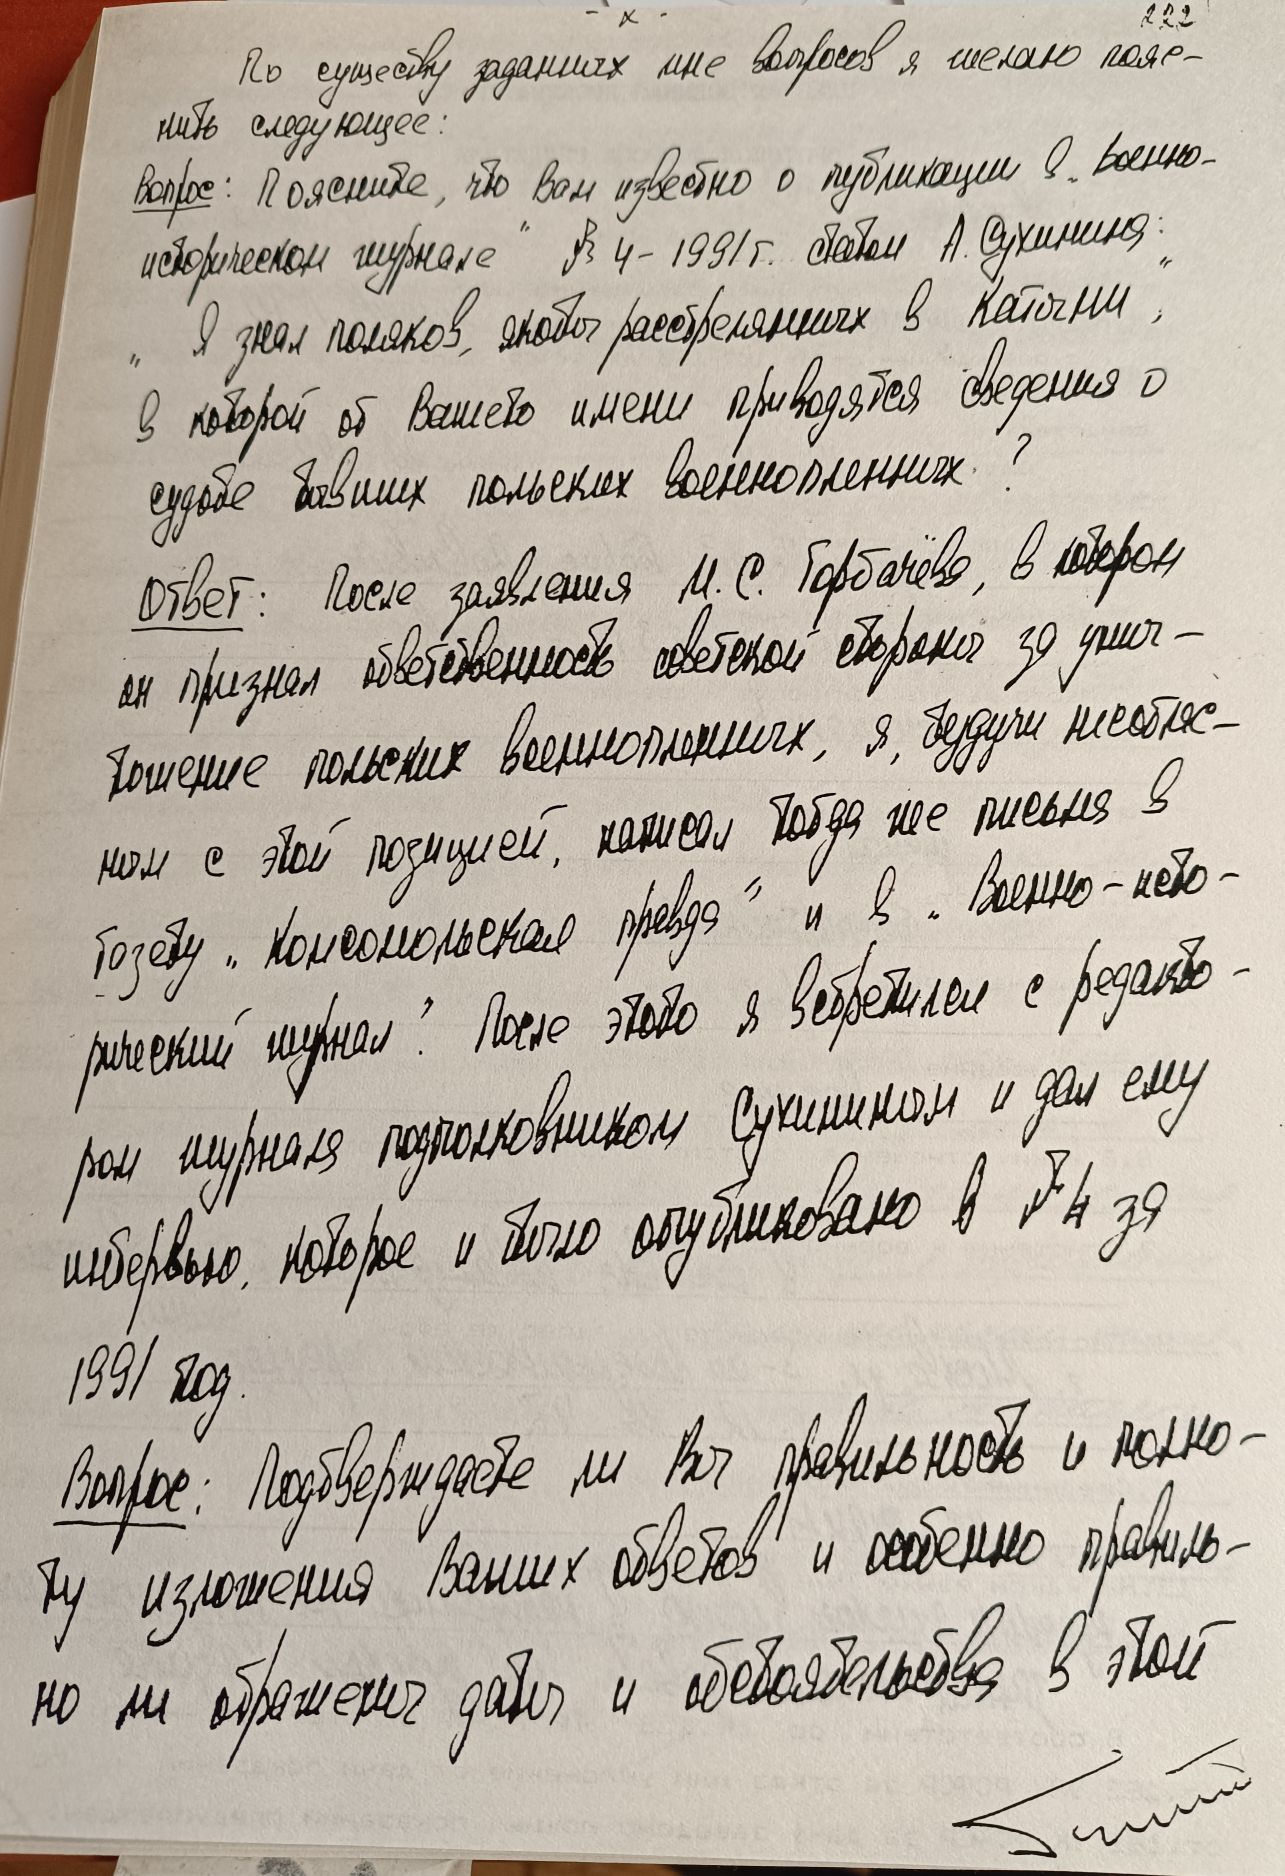 - х -
222
По существу заданных мне вопросов я желаю пояс-
нить следующее:
Вопрос: Поясните, что Вам известно о публикации в „Военно-
историческом журнале" № 4-1991г. статьи А. Сухинина:
„Я знал поляков, якобы расстрелянных в Катыни",
в которой от Вашего имени приводятся сведения о
судьбе бывших польских военнопленных?
Ответ: После заявления М.С. Горбачёва, в котором
он признал ответственность советской стороны за унич-
тожение польских военнопленных, я, будучи несоглас-
ным с этой позицией, написал тогда же письма в
газету „Комсомольская правда" и в „Военно-исто-
рический журнал". После этого я встретился с редакто-
ром журнала подполковником Сухининым и дал ему
интервью, которое и было опубликовано в № 4 за
1991 год.
Вопрос: Подтверждаете ли Вы правильность и полно-
ту изложения Ваших ответов и особенно правиль-
но ли отражены даты и обстоятельства в этой